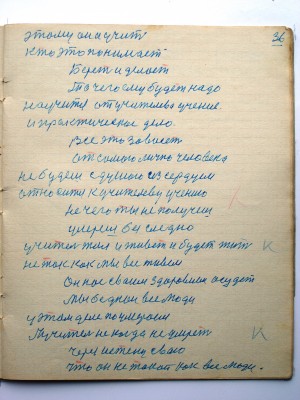 36
этому он и учит
кто это понимает
Берет и делает
То чего ему будет надо
научит от учителя учение
и практическое дело
Все это зависет
от самого лично человека
не будеш с душою и сердцем
относится к учителеву учению
не чего ты не получеш
умреш бес следно
учител жил и живет и будет жить
не так как мы все живем
Он нас своим здоровием осудет
мы бедныи все люди
у этом деле помираем
А учител не когда не умрет
через истену свою
что он не такой как все люди.